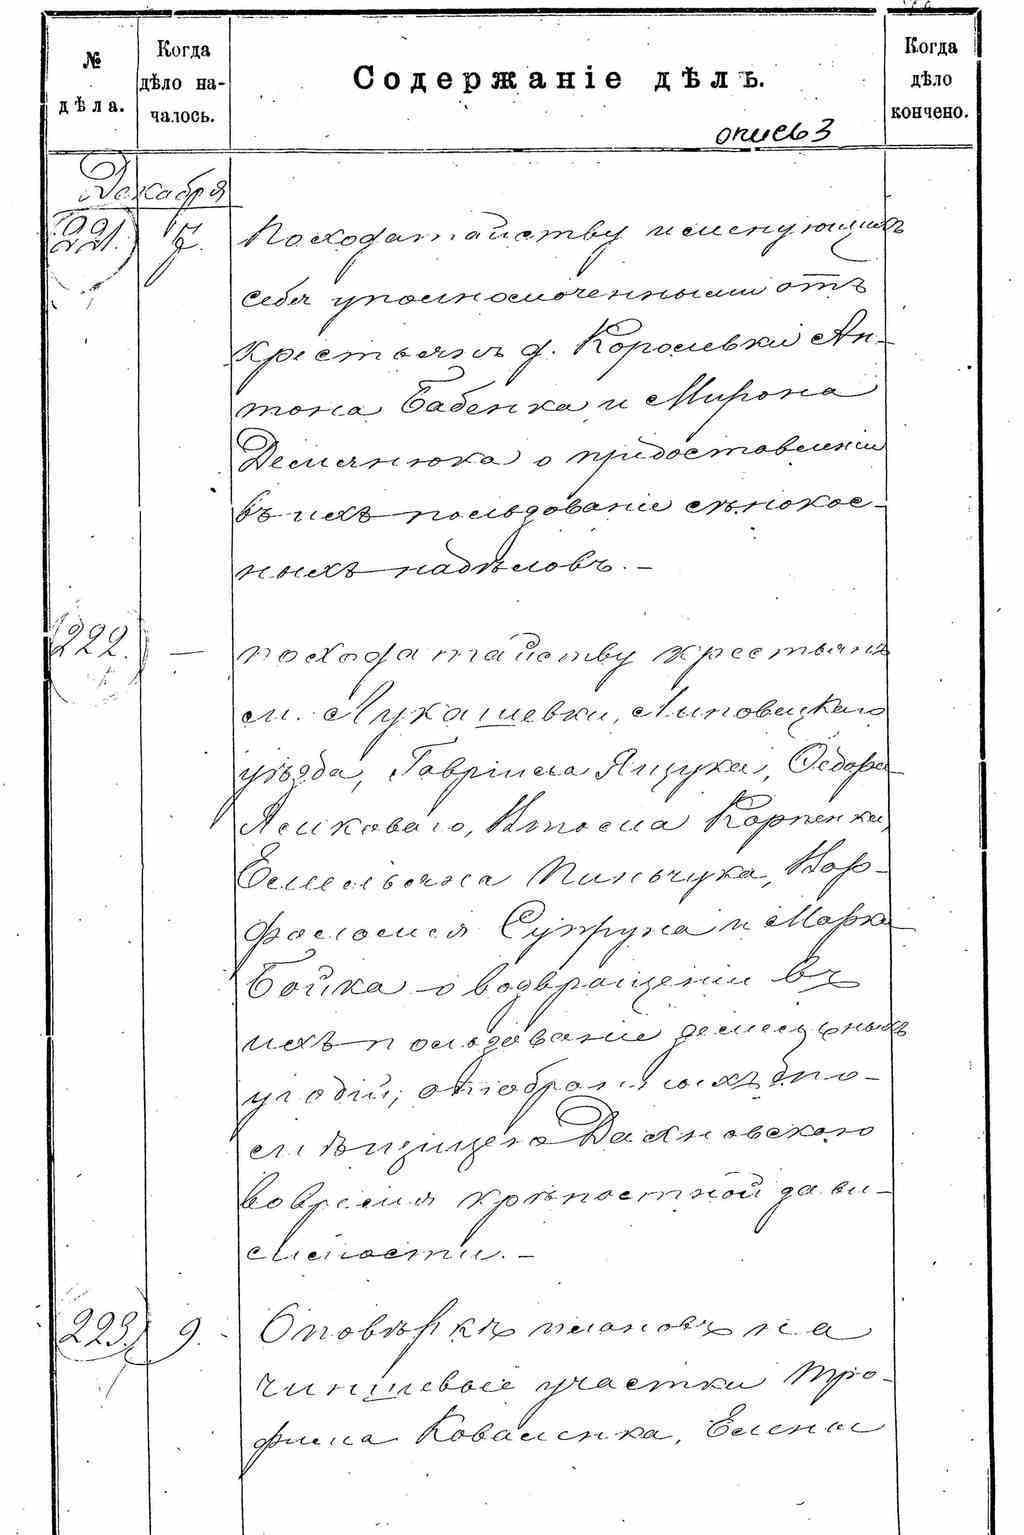 № дѣла.
Когда дѣло началось.
Содержаніе дѣлъ.
Когда дѣло кончено.
опись 3
Декабря
221. 7.
По ходатайству именующихъ
себя уполномоченными отъ
крестьянъ д. Королевки Ан-
тона Бабенка и Мирона
Демянюка о предоставленіи
въ ихъ пользованіе сѣнокос-
ныхъ надѣловъ. –
222. —
по ходатайству крестьянъ
м. Лукашевки, Липовецкаго
уѣзда, Гавріила Ящука, Ѳедора
Ясиковаго, Карпенка,
Емельяна Пиньчука, Вар-
фоломея Супруна и Марка
Бойка о возвращеніи въ
ихъ пользованіе земельныхъ
угодій, отобранныхъ по-
мѣщицею Дахновскою
во время крѣпостной зави-
симости. –
223. 9. -
О повѣркѣ плановъ на
чиншевые участки Тро-
фима Коваленка, Елены